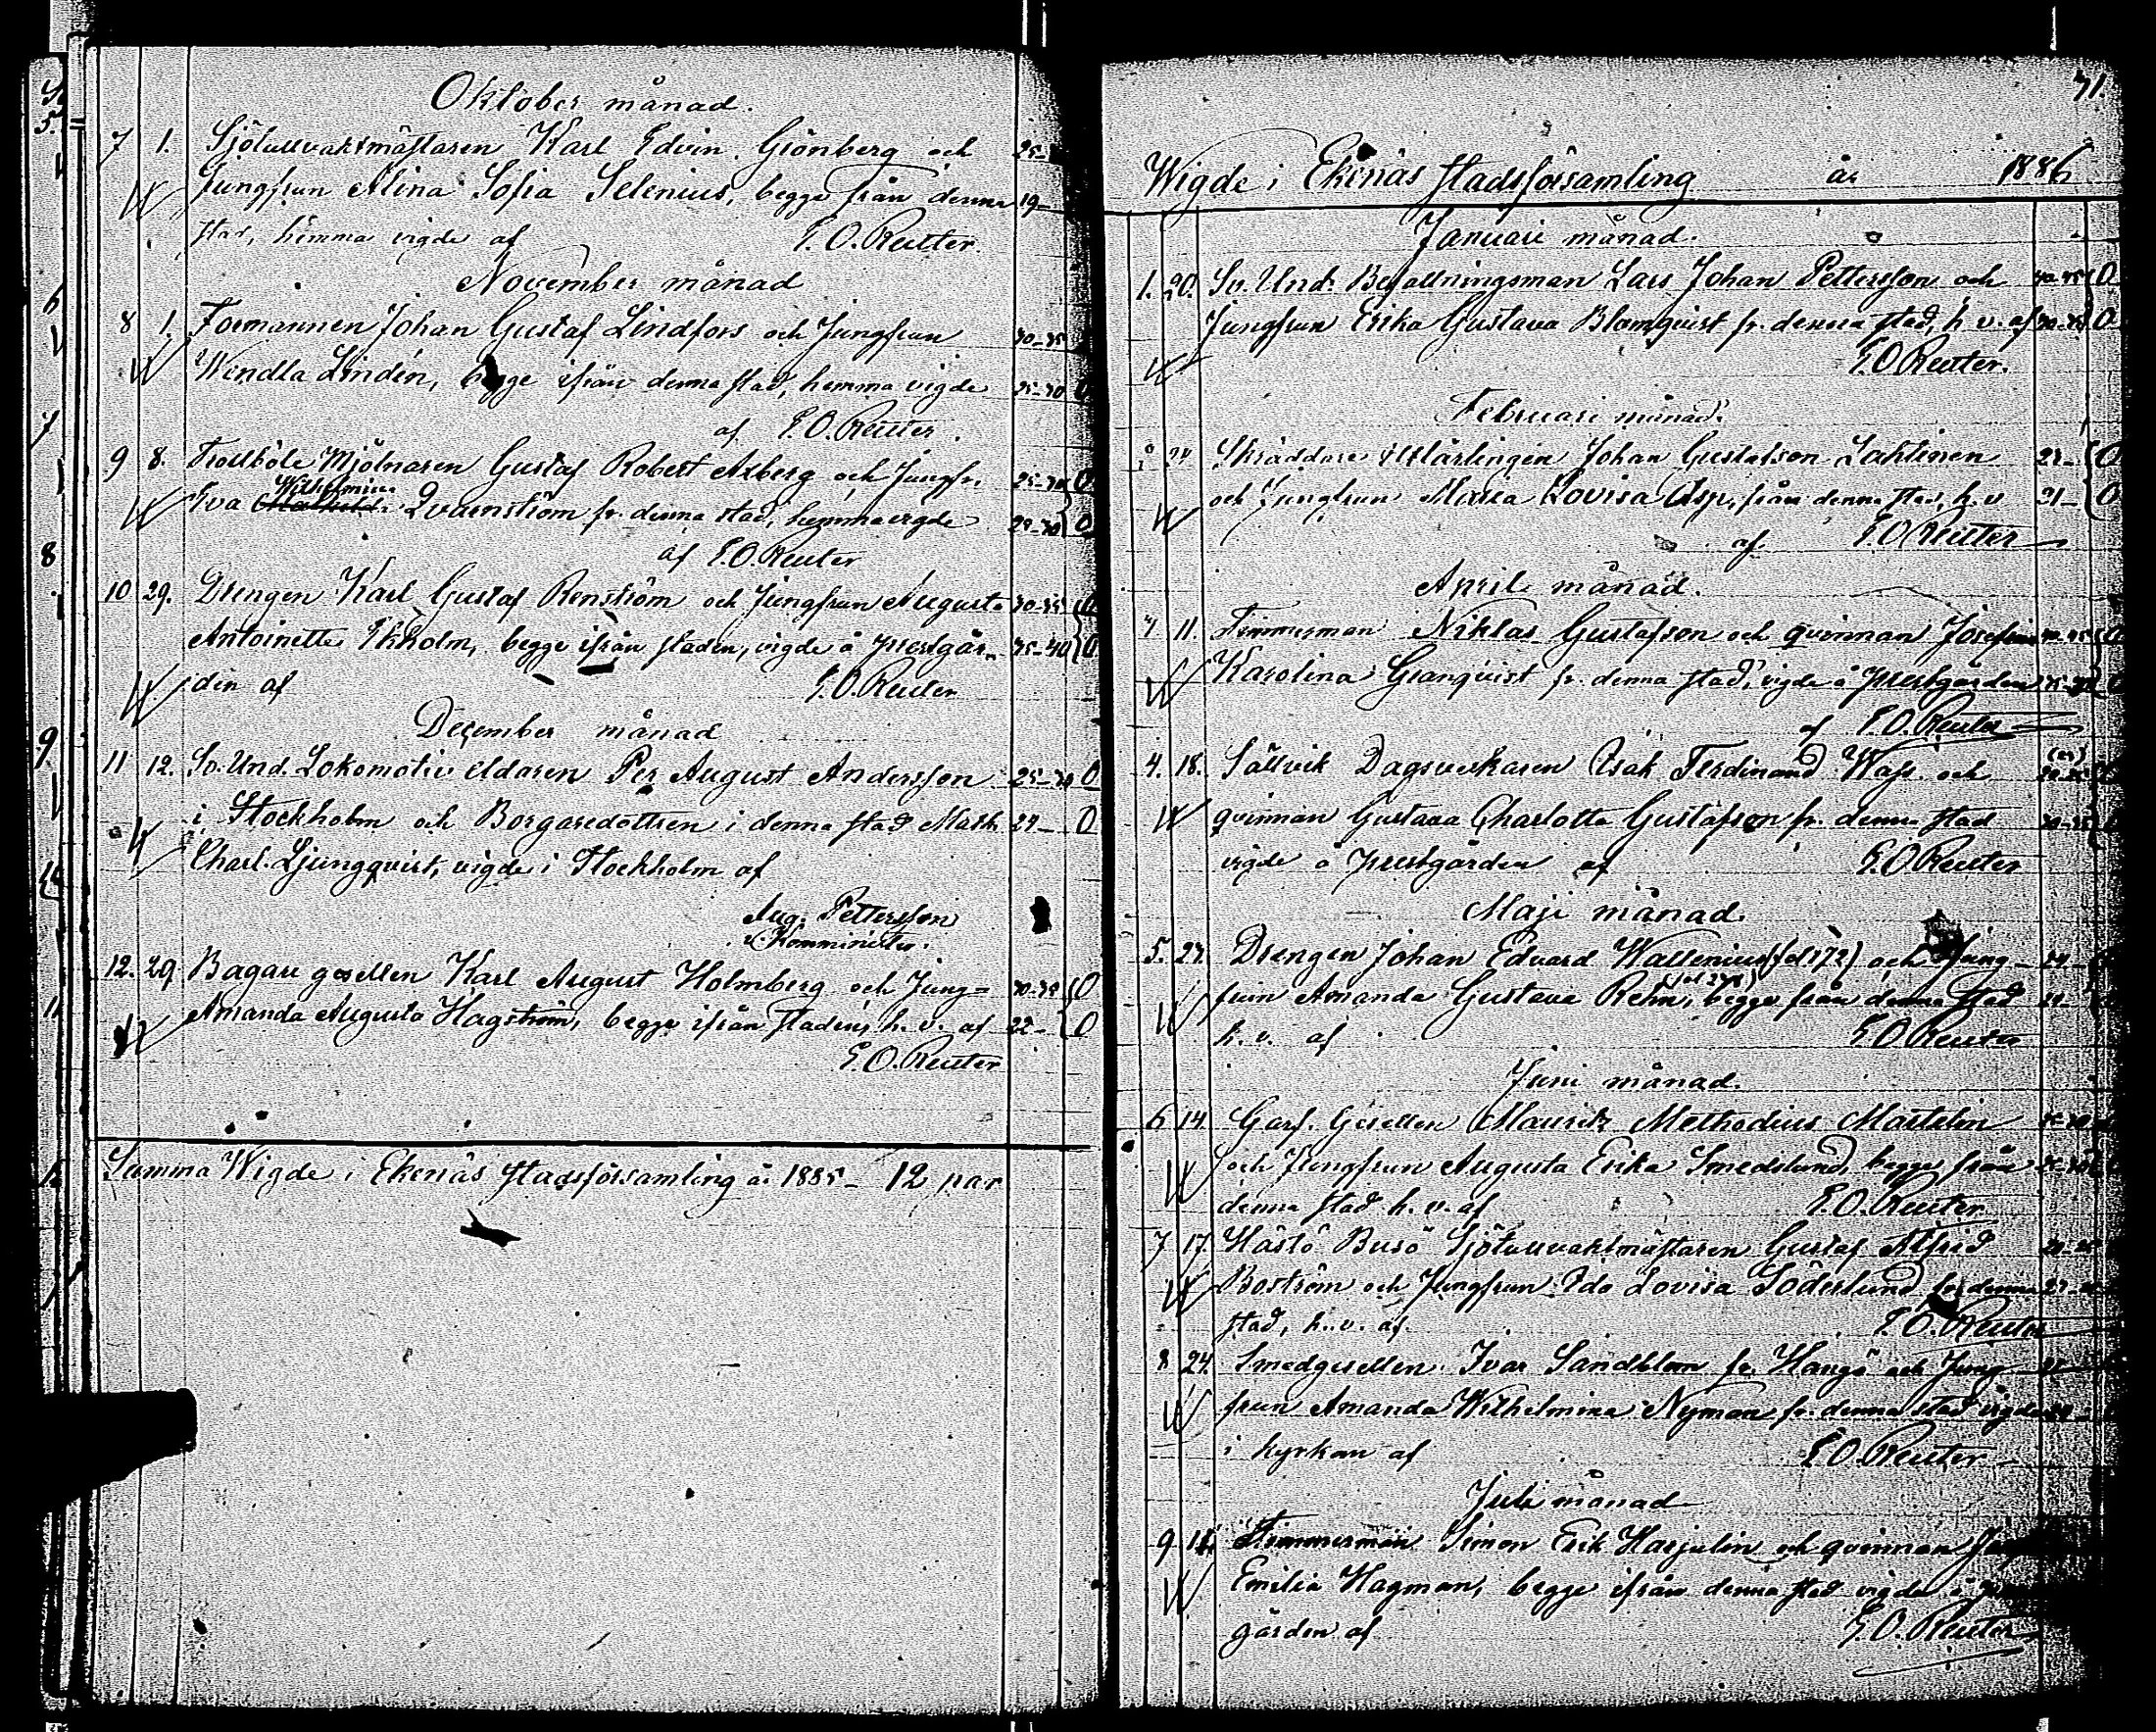 Oktober månad.
7 1. Sjötullvaktmästaren Karl Edvin Grönberg och 25-
Jungfrun Alina Sofia Selenius, begge från denna 19-
stad, hemma vigde af E. O. Reuter.
November månad
8 1. Formannen Johan Gustaf Lindfors och Jungfrun 30-35
Wendla Lindén, begge ifrån denna stad, hemma vigde 25-30 0
af E. O. Reuter.
9 8. Trollböle Mjölnaren Gustaf Robert Axberg och Jungfr. 25-30 0
Wilhelmina
Eva Qvarnström fr. denna stad, hemma vigde 0
af E. O. Reuter
10 29. Drengen Karl Gustaf Renström och Jungfrun Augusta 30-35 0
Antoinette Ekholm, begge ifrån staden, vigde å prestgår- 35-40 0
den af E. O. Reuter
December månad
11 12. Sv. Und. Lokomotiv eldaren Per August Andersson 25-30 0
i Stockholm och Borgaredottren i denna stad Math. 24- 0
Charl. Ljungqvist, vigde i Stockholm af
Aug. Pettersson
v. Komminister.
12. 29 Bagare gesellen Karl August Holmberg och Jung= 30-35 0
Amanda Augusta Hagström, begge ifrån staden, h. v. af 22- 0
E. O. Reuter
Summa Wigde i Ekenäs stadsförsamling år 1885 - 12 par
71.
Wigde i Ekenäs stadsförsamling år 1886
Januari månad.
1. 20. Sv. Und. Befallningsman Lars Johan Pettersson och 40-45 0
Jungfrun Erika Gustava Blomqvist fr. denna stad, h. v. af 0
E. O. Reuter.
Februari månad.
24 Skräddare Johan Gustafson Lahtinen 0
och Jungfrun Maria Lovisa Asp, från denna stad, h. v. 21- 0
af E. O. Reuter
April månad.
11. Timmerman Niklas Gustafsson och qvinnan Josefina
Karolina Granqvist fr. denna stad, vigde å prestgården
af E. O. Reuter
4. 18. Sällvik Dagsverkaren Isak Ferdinand Wass och
qvinnan Gustava Charlotta Gustafson fr. denna stad
vigde å prestgården af E. O. Reuter
Maji månad.
5. 27. Drengen Johan Edvard Wallenius (fol 172) och Jung-
frun Amanda Gustava Rehn, begge från denna stad
h. v. af E. O. Reuter
Juni månad.
6 14. Garf. Gesellen Mauritz Methodius Martelin
och Jungfrun Augusta Erika Smedslund, begge från
denna stad h. v. af E. O. Reuter
7 17. Hästö Busö Sjötullvaktmästaren Gustaf Alfrid
Boström och Jungfrun Ida Lovisa Söderlund fr. denna
stad, h. v. af E. O. Reuter
8 24. Smedgesellen Ivar Sandblom fr. Hangö och Jung
frun Amanda Wilhelmina Nyman fr. denna stad vigde
i kyrkan af E. O. Reuter
Juli månad
9 Timmerman Simon Erik Harjulin och qvinnan
Emilia Hagman, begge ifrån denna stad vigde å
gården af E. O. Reuter